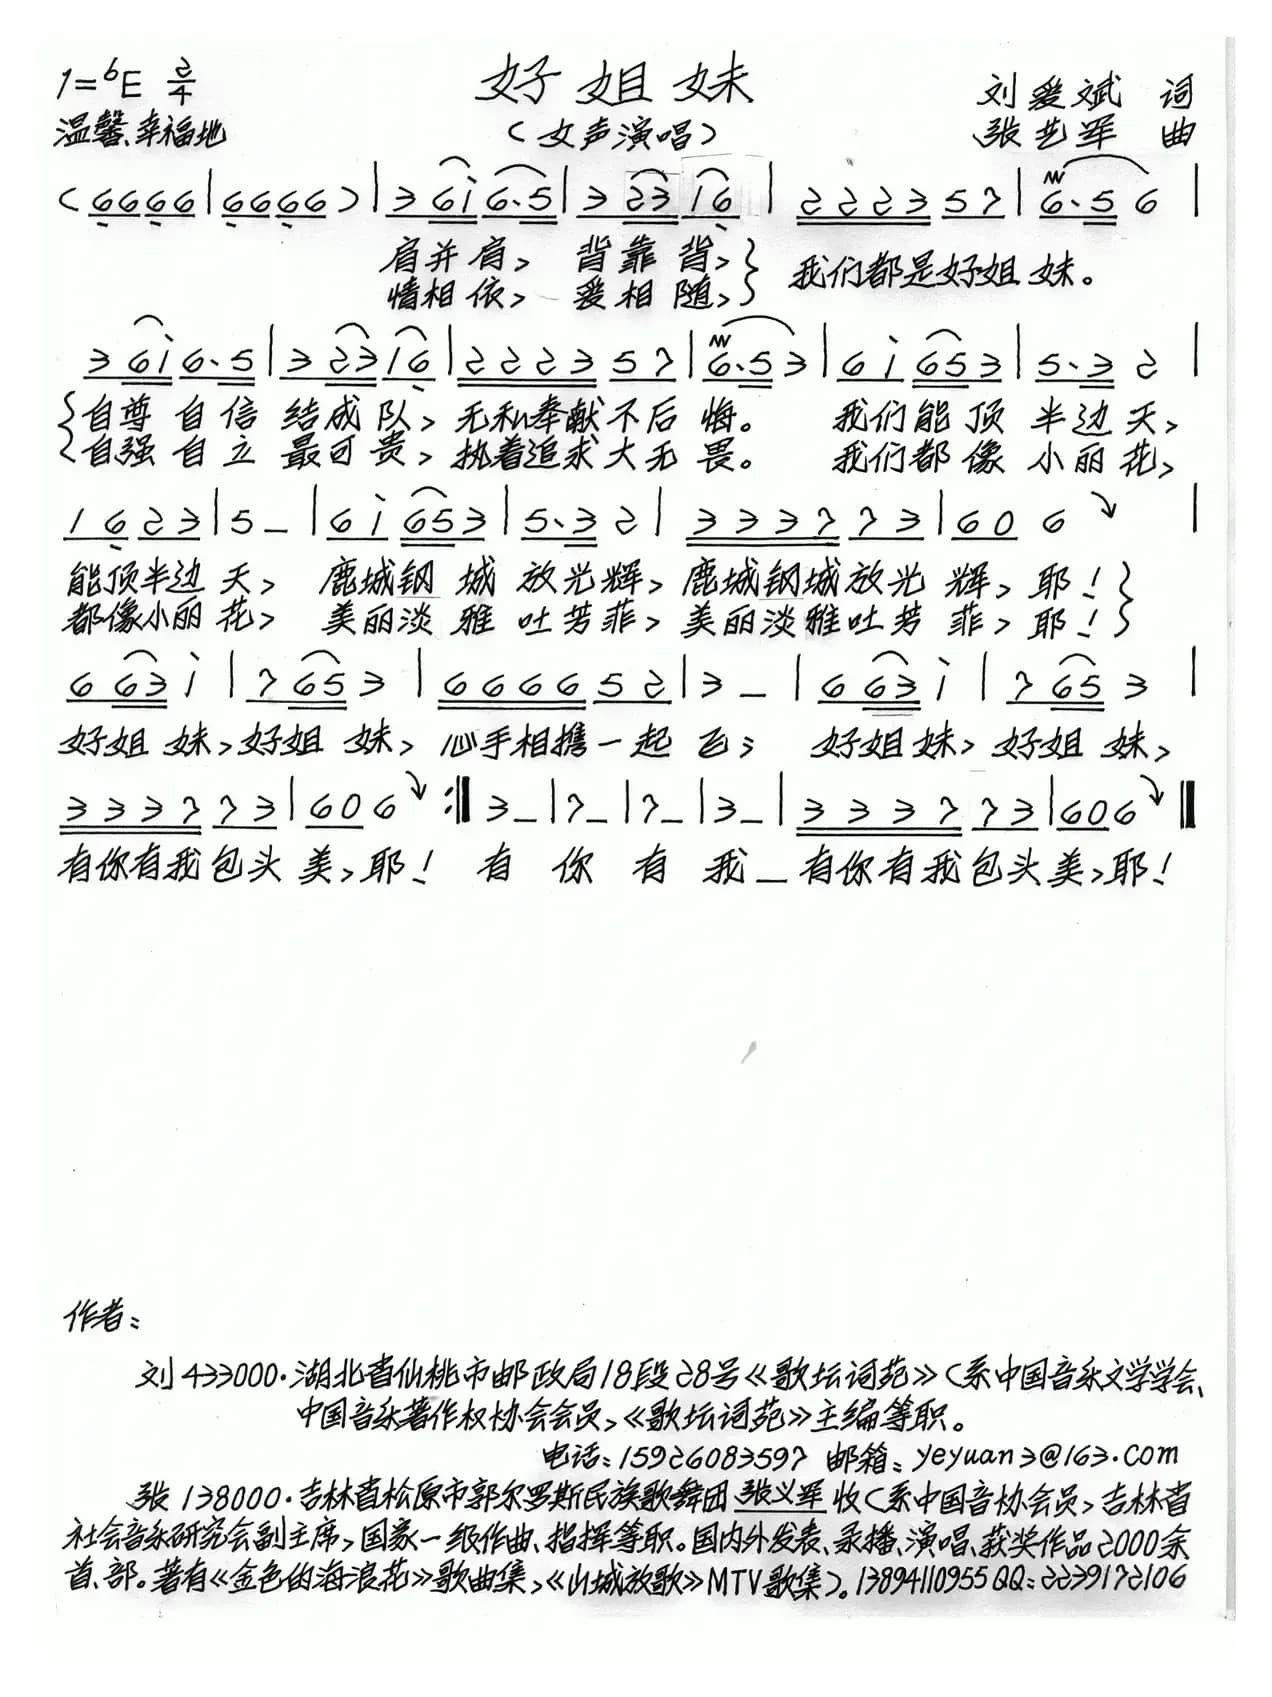 1=♭E 2/4
好姐妹
刘爱斌 词
温馨、幸福地
(女声演唱)
张艺军 曲
(6666 6666|6666 6666)|3 6i 6·5|3 23 16|2223 57|6·5 6|
肩并肩, 背靠背, 我们都是好姐妹。
情相依, 爱相随,
3 6i 6·5|3 23 16|2223 57|6·5 3|6i 653|5·3 2|
自尊自信结成队, 无私奉献不后悔。 我们能顶半边天,
自强自立最可贵, 执着追求大无畏。 我们都像小丽花,
16 23|5 –|6i 653|5·3 2|3337 73|60 6|
能顶半边天, 鹿城钢城放光辉, 鹿城钢城放光辉, 耶!
都像小丽花, 美丽淡雅吐芳菲, 美丽淡雅吐芳菲, 耶!
6 63 i|7 65 3|6666 52|3 –|6 63 i|7 65 3|
好姐妹, 好姐妹, 心手相携一起飞; 好姐妹, 好姐妹,
3337 73|60 6:‖3 –|7 –|7 –|3 –|3337 73|60 6‖
有你有我包头美, 耶! 有 你 有 我 – 有你有我包头美, 耶!
作者:
刘 433000·湖北省仙桃市邮政局18段28号《歌坛词苑》(系中国音乐文学学会、
中国音乐著作权协会会员,《歌坛词苑》主编等职。
电话:15926083597 邮箱:yeyuan3@163.com
张 138000·吉林省松原市郭尔罗斯民族歌舞团张义军收(系中国音协会员, 吉林省
社会音乐研究会副主席, 国家一级作曲、指挥等职。国内外发表、录播、演唱、获奖作品2000余
首、部。著有《金色的海浪花》歌曲集,《山城放歌》MTV歌集)。13894110955 QQ:2239172106